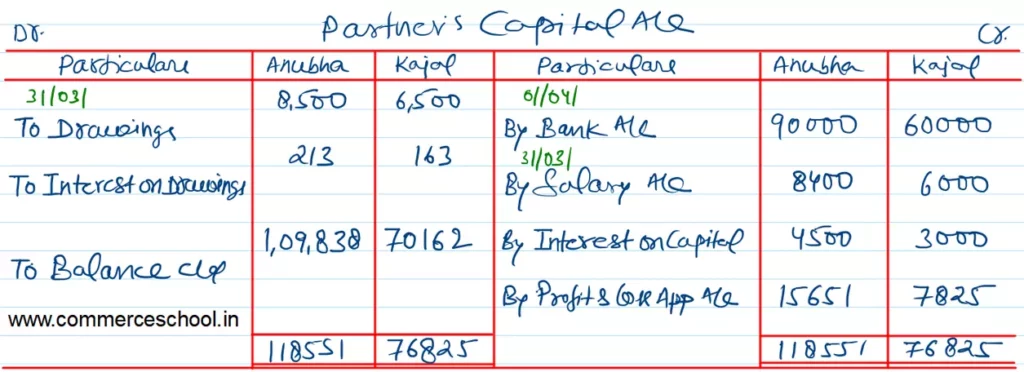 Partner's Capital A/c
Dr. Cr.
Particulars Anubha Kajal Particulars Anubha Kajal
31/03/ 8,500 6,500 01/04/
To Drawings By Bank A/c 90000 60000
213 163 31/03/
To Interest on Drawings By Salary A/c 8400 6000
1,09,838 70162 By Interest on Capital 4500 3000
To Balance c/d
By Profit & Loss App A/c 15651 7825
www.commerceschool.in
118551 76825 118551 76825